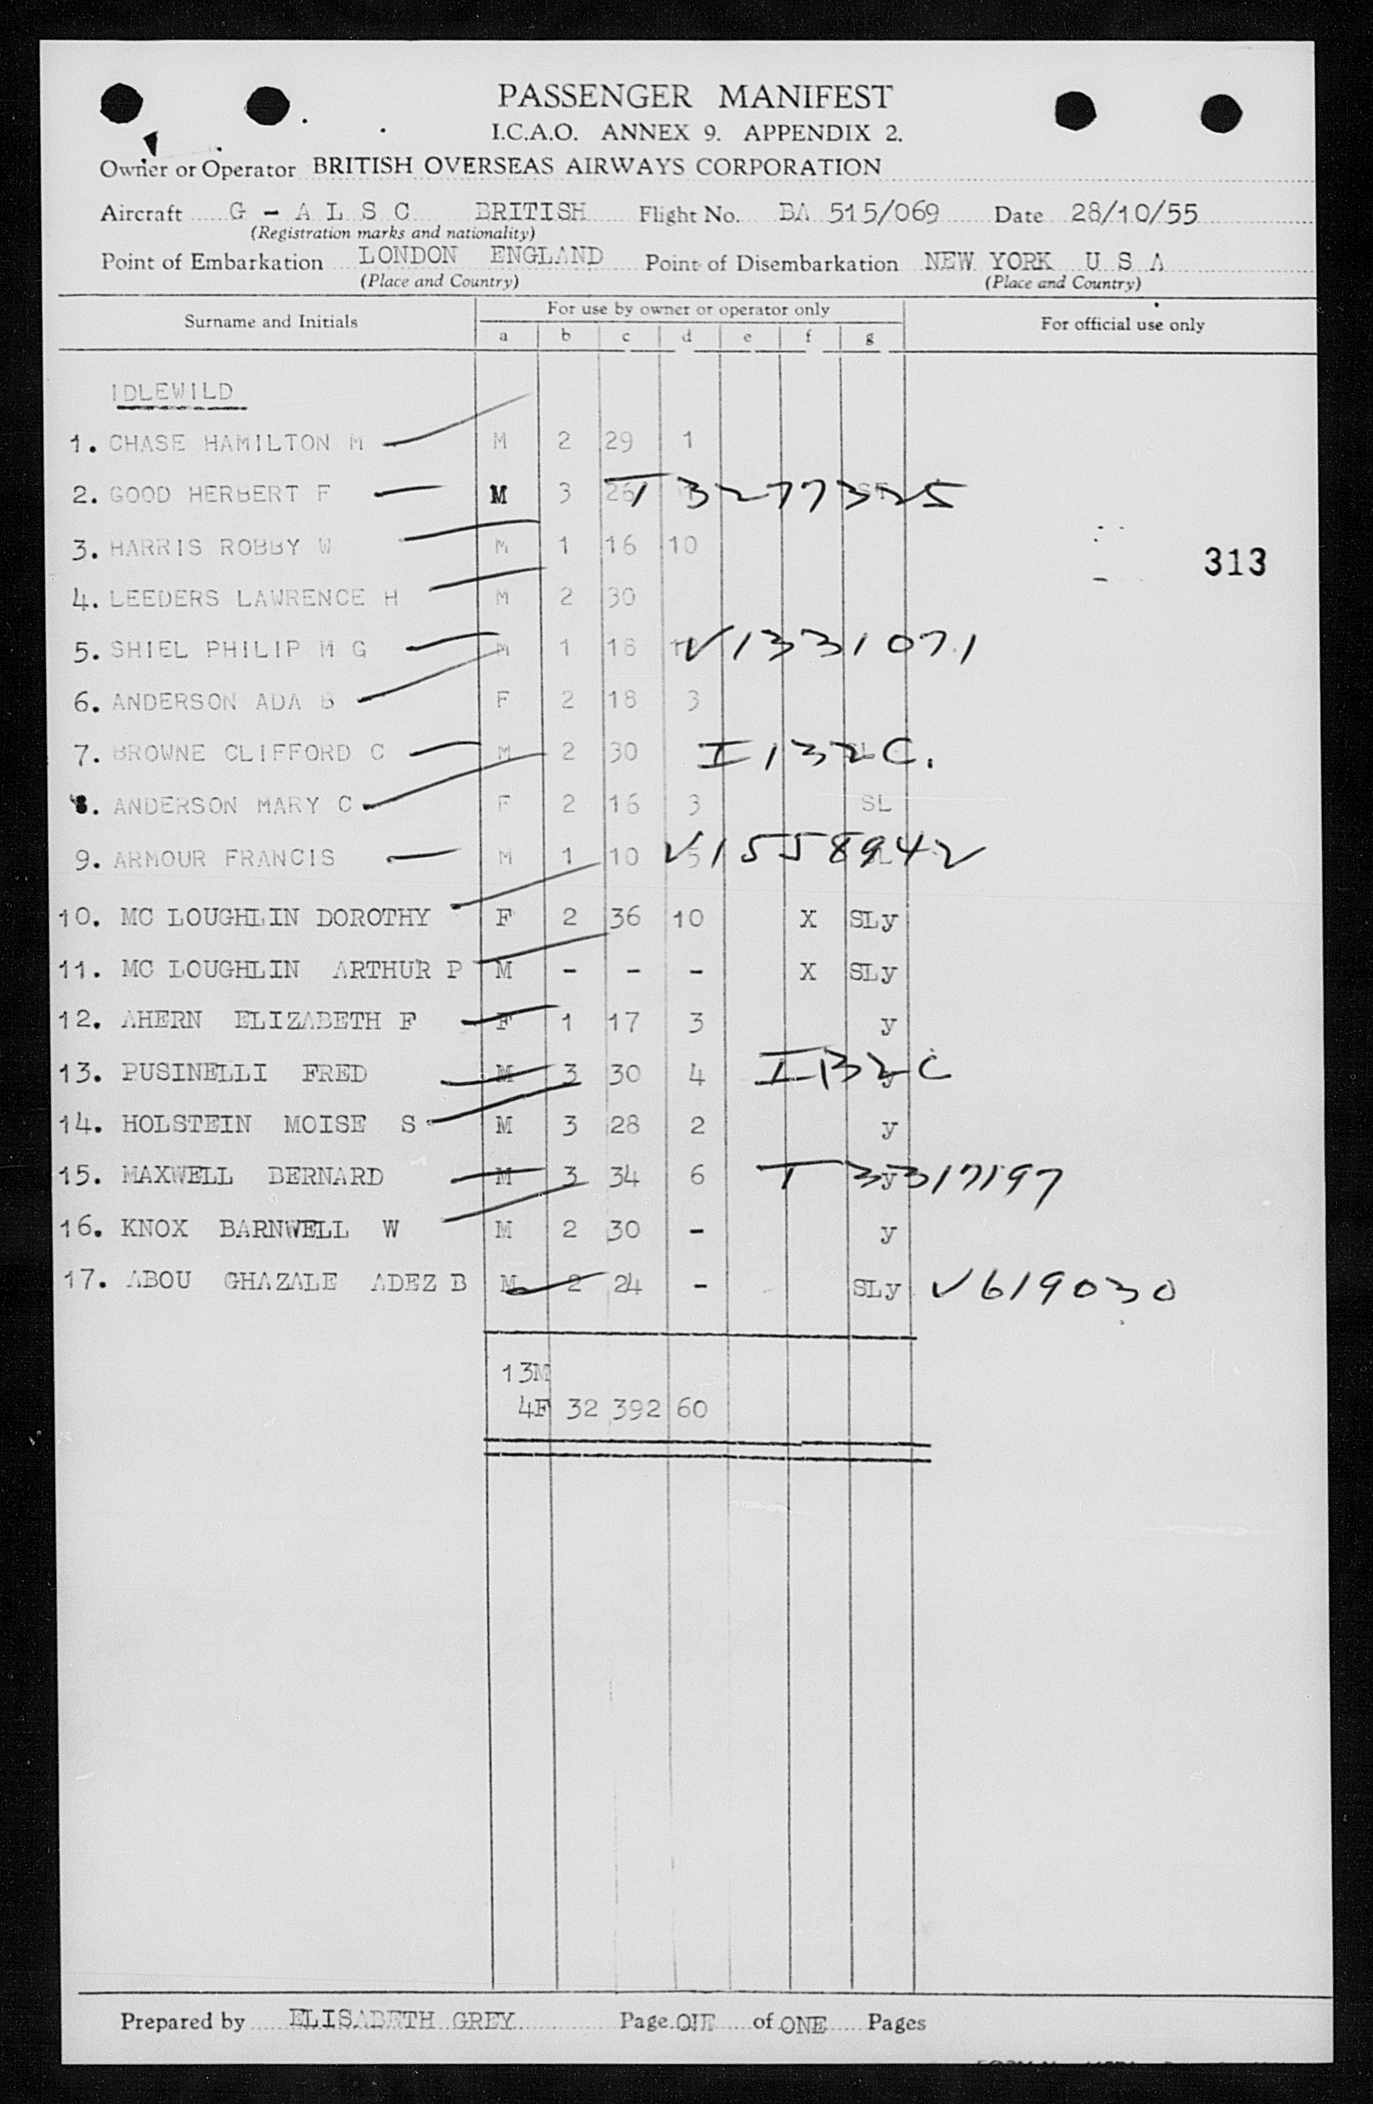 PASSENGER MANIFEST
I.C.A.O. ANNEX 9. APPENDIX 2.
Owner or Operator BRITISH OVERSEAS AIRWAYS CORPORATION
Aircraft G - A L S C BRITISH Flight No. BA 515/069 Date 28/10/55
(Registration marks and nationality)
Point of Embarkation LONDON ENGLAND Point of Disembarkation NEW YORK U S A
(Place and Country) (Place and Country)
Surname and Initials For use by owner or operator only For official use only
a b c d e f g
IDLEWILD
1. CHASE HAMILTON M M 2 29 1
2. GOOD HERBERT F M 3 26 T 3277325
3. HARRIS ROBBY W M 1 16 10
313
4. LEEDERS LAWRENCE H M 2 30
5. SHIEL PHILIP M G M 1 18 V1331071
6. ANDERSON ADA B F 2 18 3
7. BROWNE CLIFFORD C M 2 30 I132C.
8. ANDERSON MARY C F 2 16 3 SL
9. ARMOUR FRANCIS M 1 10 5 V1558942
10. MC LOUGHLIN DOROTHY F 2 36 10 X SLy
11. MC LOUGHLIN ARTHUR P M - - - X SLy
12. AHERN ELIZABETH F F 1 17 3 y
13. PUSINELLI FRED M 3 30 4 I132C
14. HOLSTEIN MOISE S M 3 28 2 y
15. MAXWELL BERNARD M 3 34 6 y T 3317197
16. KNOX BARNWELL W M 2 30 - y
17. ABOU GHAZALE ADEZ B M 2 24 - SLy V619030
13M
4F 32 392 60
Prepared by ELISABETH GREY Page ONE of ONE Pages